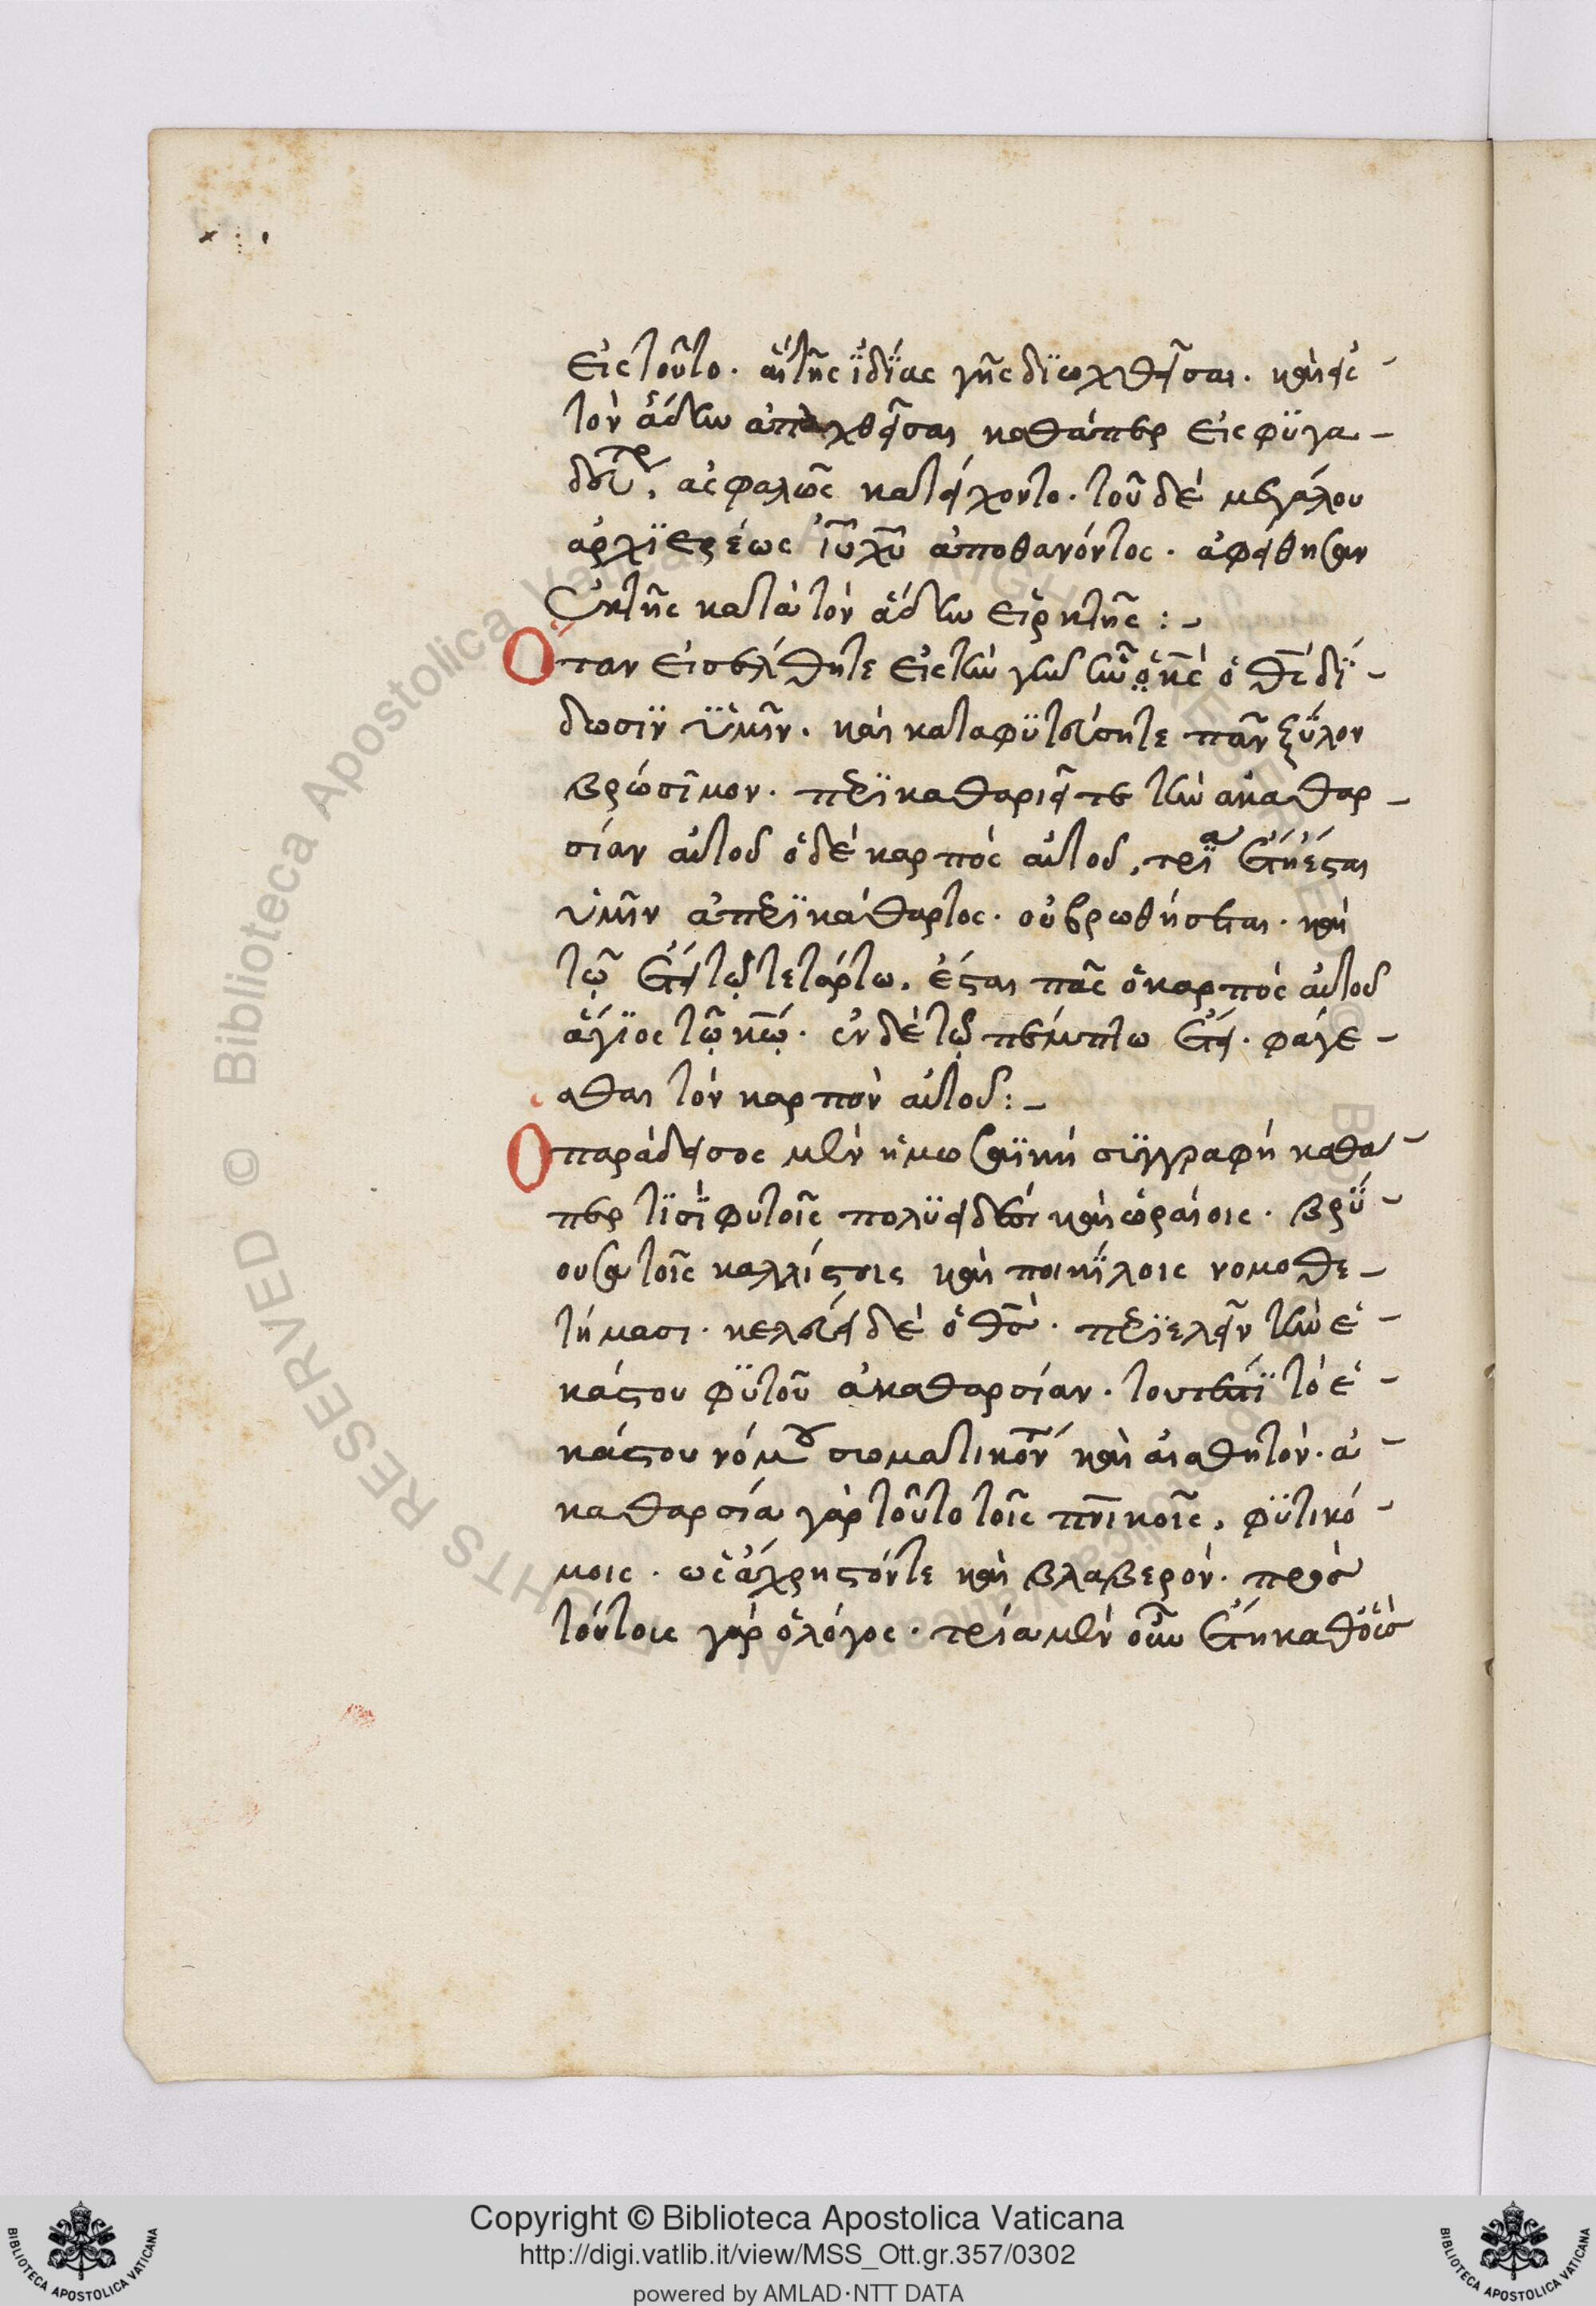 εἰς τοῦτο. αἳ τῆς ἰδίας γῆς διωχθεῖσαι. καὶ εἰς
τὸν ἅδην ἀπαχθεῖσαι καθάπερ εἰς φυγα-
δευτήρ, ἀσφαλῶς κατείχοντο. τοῦ δὲ μεγάλου
ἀρχϊερέως ἰῦ χῦ ἀποθανόντος. ἀφείθησαν
ἐκ τῆς κατὰ τὸν ἅδην εἱρκτῆς :-
Ὅταν εἰσέλθητε εἰς τὴν γῆν ἣν ὁ κς ὁ θς δί-
δωσϊν ὑμῖν. καὶ καταφϋτεύσητε πᾶν ξύλον
βρώσιμον. περϊκαθαριεῖτε τὴν ἀκαθαρ-
σίαν αὐτοῦ ὁ δὲ καρπὸς αὐτοῦ, τρία ἔτη ἔσται
ὑμῖν ἀπερϊκάθαρτος. οὐ βρωθήσεται. καὶ
τῷ ἔτει τῷ τετάρτω. ἔσται πᾶς ὁ καρπὸς αὐτοῦ
ἅγϊος τῷ κω. ἐν δὲ τῷ πέμπτω ἔτει. φάγε-
σθαι τὸν καρπὸν αὐτοῦ :-
Ὁ παράδεισος μὲν ἡ μωσαϊκὴ συγγραφὴ καθά-
περ τϊσῒ φυτοῖς πολϋειδέσι καὶ ὡραίοις. βρύ-
ουσα τοῖς καλλίστοις καὶ ποικίλοις νομοθε-
τήμασι. κελεύει δὲ ὁ θς. περϊελεῖν τὴν ἑ-
κάστου φϋτοῦ ἀκαθαρσίαν. τουτέστϊ τὸ ἑ-
κάστου νόμου σωματικόν καὶ αἰσθητόν. ἀ-
καθαρσία γὰρ τοῦτο τοῖς πνικοῖς, φϋτικό-
μοις. ὡς ἄχρηστόν τε καὶ βλαβερόν. πρὸς
τούτοις γὰρ ὁ λόγος. τρία μὲν οὖν ἔτη καθ' οὓς
Copyright © Biblioteca Apostolica Vaticana
http://digi.vatlib.it/view/MSS_Ott.gr.357/0302
powered by AMLAD·NTT DATA